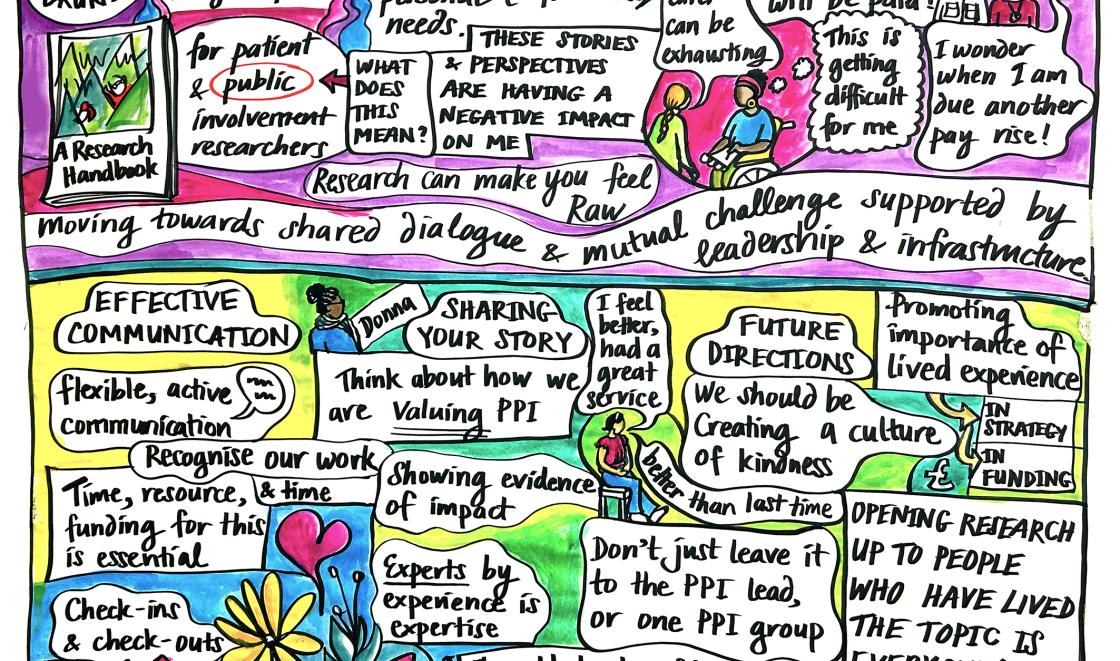 needs.
can be
exhausting
for patient
& public
involvement
researchers
A Research
Handbook
WHAT
DOES
THIS
MEAN?
THESE STORIES
& PERSPECTIVES
ARE HAVING A
NEGATIVE IMPACT
ON ME
This is
getting
difficult
for me
I wonder
when I am
due another
pay rise!
Research can make you feel
Raw
moving towards shared dialogue & mutual challenge supported by
leadership & infrastructure.
EFFECTIVE
COMMUNICATION
flexible, active
communication
Recognise our work
& time
Time, resource,
funding for this
is essential
Check-ins
& check-outs
Donna
SHARING
YOUR STORY
Think about how we
are valuing PPI
Showing evidence
of impact
Experts by
experience is
expertise
I feel
better,
had a
great
service
better than last time
Don't just leave it
to the PPI lead,
or one PPI group
FUTURE
DIRECTIONS
We should be
Creating a culture
of kindness
Promoting
importance of
lived experience
IN
STRATEGY
IN
FUNDING
£
OPENING RESEARCH
UP TO PEOPLE
WHO HAVE LIVED
THE TOPIC IS